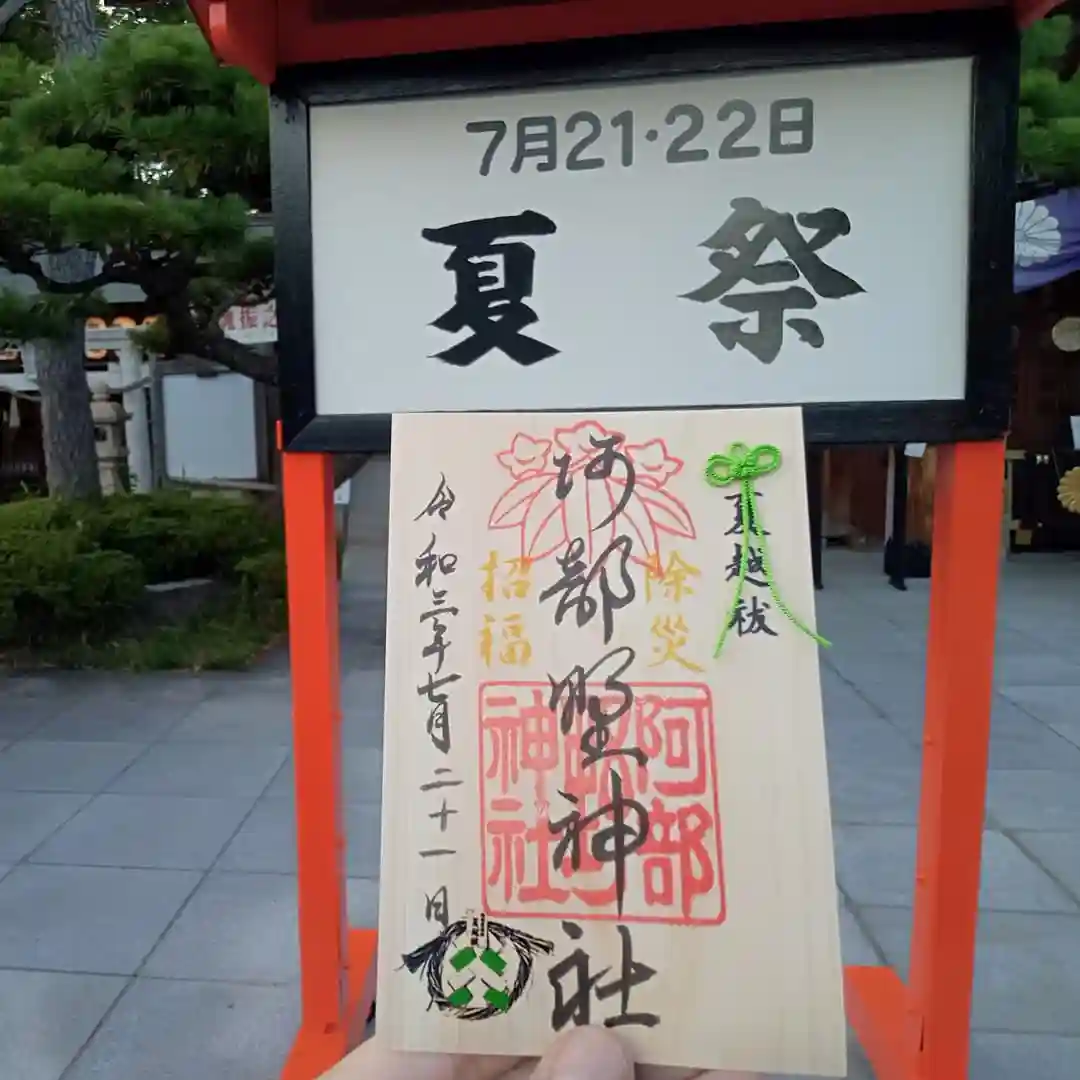 7月21・22日
夏祭
夏越祓
除災
招福
阿部野神社
阿部野神社
令和三年七月二十一日